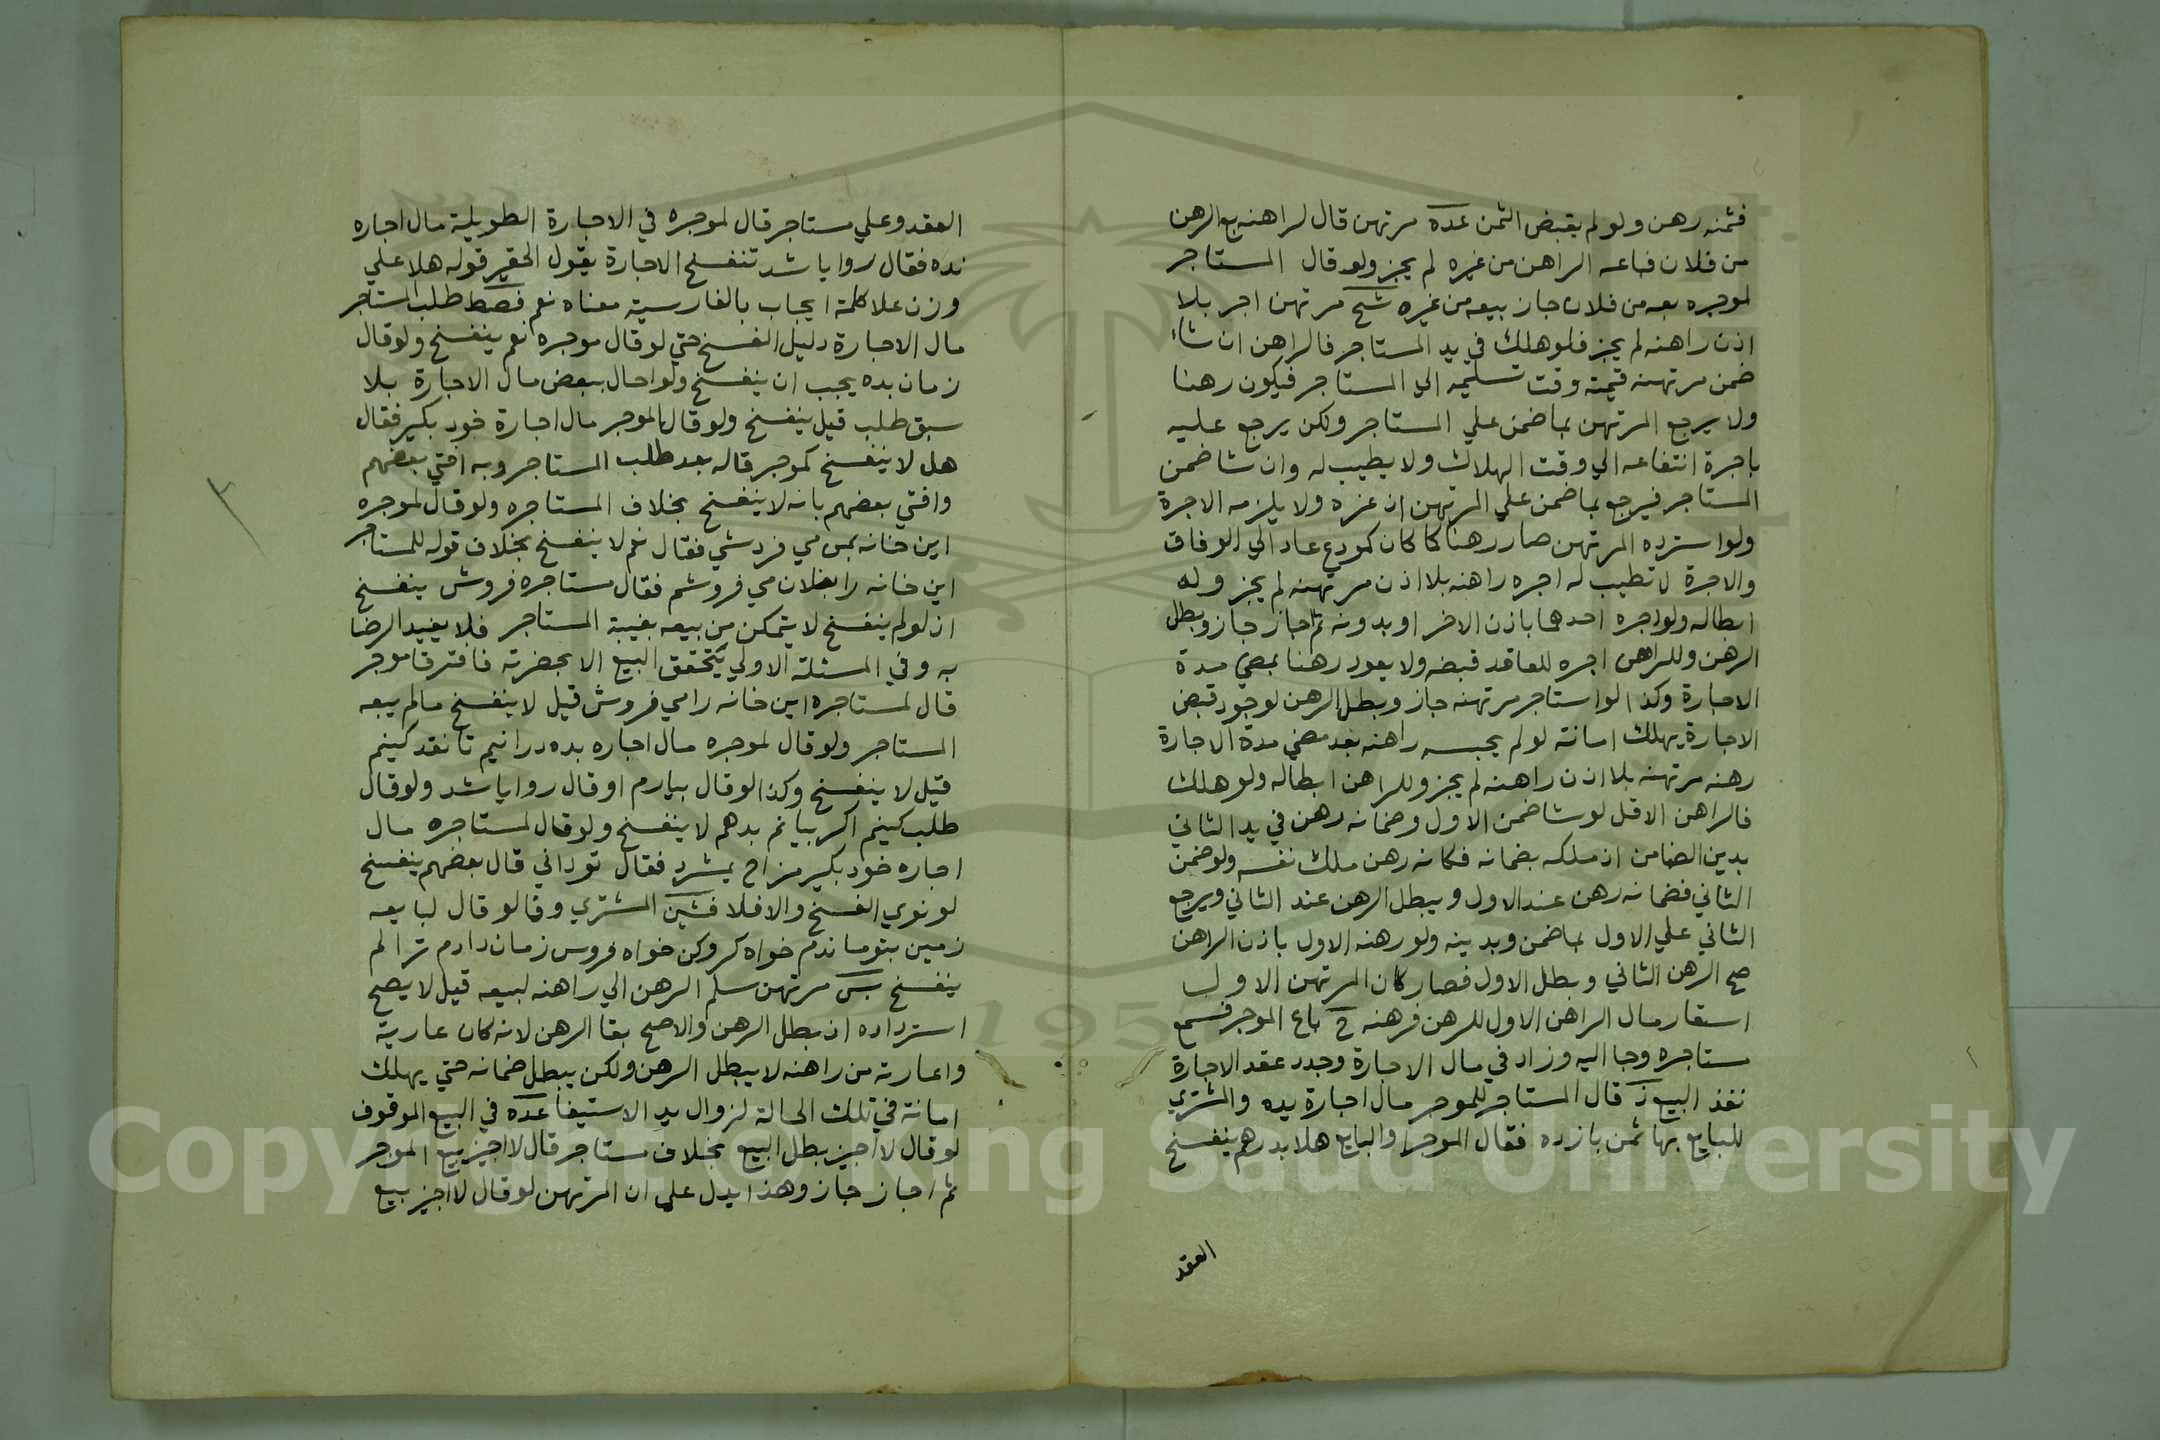 فثمنه رهن ولو لم يقبض الثمن عده مرتهن قال لراهنه بع الرهن
من فلان فباعه الراهن من غيره لم يجز ولو قال المستاجر
لموجره بعه من فلان جاز بيعه من غيره شح مرتهن اجر بلا
اذن راهنه لم يجز فلو هلك في يد المستاجر فالراهن ان شاء
ضمن مرتهنه قيمته وقت تسليمه الي المستاجر فيكون رهنا
ولا يرجع المرتهن بما ضمن علي المستاجر ولكن يرجع عليه
باجرة انتفاعه الي وقت الهلاك ولا يطيب له وان شا ضمن
المستاجر فيرجع بما ضمن علي المرتهن ان غره ولا يلزمه الاجرة
ولو استرده المرتهن صار رهنا كما كان كمودع عاد الي الوفاق
والاجرة لا تطيب له اجره راهنه بلا اذن مرتهنه لم يجز وله
ابطاله ولو اجره احدهما باذن الاخر او بدونه ثم اجاز جاز وبطل
الرهن وللراهن اجره للعاقد قبضه ولا يعود رهنا بمضي مدة
الاجارة وكذا لو استاجر مرتهنه جاز وبطل الرهن لوجود قبض
الاجارة يهلك امانة لو لم يحبسه راهنه بعد مضي مدة الاجارة
رهنه مرتهنه بلا اذن راهنه لم يجز وللراهن ابطاله ولو هلك
فالراهن الاقل لو شا ضمن الاول وضمانه رهن في يد الثاني
بدين الضامن اذ ملكه بضمانه فكانه رهن ملك نفسه ولو ضمن
الثاني فضمانه رهن عند الاول ويبطل الرهن عند الثاني ويرجع
الثاني علي الاول بما ضمن وبدينه ولو رهنه الاول باذن الراهن
صح الرهن الثاني وبطل الاول فصار كان المرتهن الاول
استعار مال الراهن الاول للرهن فرهنه خ باع الموجر فسمع
مستاجره وجا اليه وزاد في مال الاجارة وجدد عقد الاجارة
نفذ البيع ذ قال المستاجر للموجر مال اجارة بده والمشتري
للبايع بها ثمن بازده فقال الموجر او البايع هلا بدرهم ينفسخ
العقد
العقد وعلي مستاجر قال لموجره في الاجارة الطويلة مال اجاره
بده فقال روا باشد تنفسخ الاجارة يقول الحقير قوله هلا علي
وزن علا كلمة ايجاب بالفارسية معناه نعم فصط طلب المستاجر
مال الاجارة دليل الفسخ حتي لو قال موجره نعم ينفسخ ولو قال
زمان بده يجب ان ينفسخ ولو احال ببعض مال الاجارة بلا
سبق طلب قيل ينفسخ ولو قال الموجر مال اجارة خود بكير فقال
هل لا ينفسخ كموجر قاله بعد طلب المستاجر وبه افتي بعضهم
وافتي بعضهم بانه لا ينفسخ بخلاف المستاجره ولو قال لموجره
اين خانه بمن مي فردشي فقال نعم لا ينفسخ بخلاف قوله للمستاجر
اين خانه را بفلان مي فروشم فقال مستاجره فروش ينفسخ
اذ لو لم ينفسخ لا يتمكن من بيعه بغيبة المستاجر فلا يفيد الرضا
به وفي المسئلة الاولي يتحقق البيع الا بحضرته فافترقا موجر
قال لمستاجره اين خانه رامي فروش قيل لا ينفسخ ما لم يبعه
المستاجر ولو قال لموجره مال اجاره بده درانيم تا نقد كينم
قيل لا ينفسخ وكذا لو قال بيارم او قال روا باشد ولو قال
طلب كينم اكر بيابم بدهم لا ينفسخ ولو قال لمستاجره مال
اجاره خود بكير مزاح بمشرد فقال توداني قال بعضهم ينفسخ
لو نوي الفسخ والا فلا فشين المشتري وقالو قال لبايعه
زمين بتو ماندم خواه كروكن خواه فروس زمان دادم ترا لم
ينفسخ بس مرتهن سلم الرهن الي راهنه لبيعه قيل لا يصح
استرداده اذ بطل الرهن والاصح بقا الرهن لانه كان عارية
واعارته من راهنه لا يبطل الرهن ولكن يبطل ضمانه حتي يهلك
امانة في تلك الحالة لزوال يد الاستيفا عده في البيع الموقوف
لو قال لا اجيز بطل البيع بخلاف مستاجر قال لا اجيز بيع الموجر
ثم اجاز جاز وهذا يدل علي ان المرتهن لو قال لا اجيز بيع
Copyright © King Saud University
1957